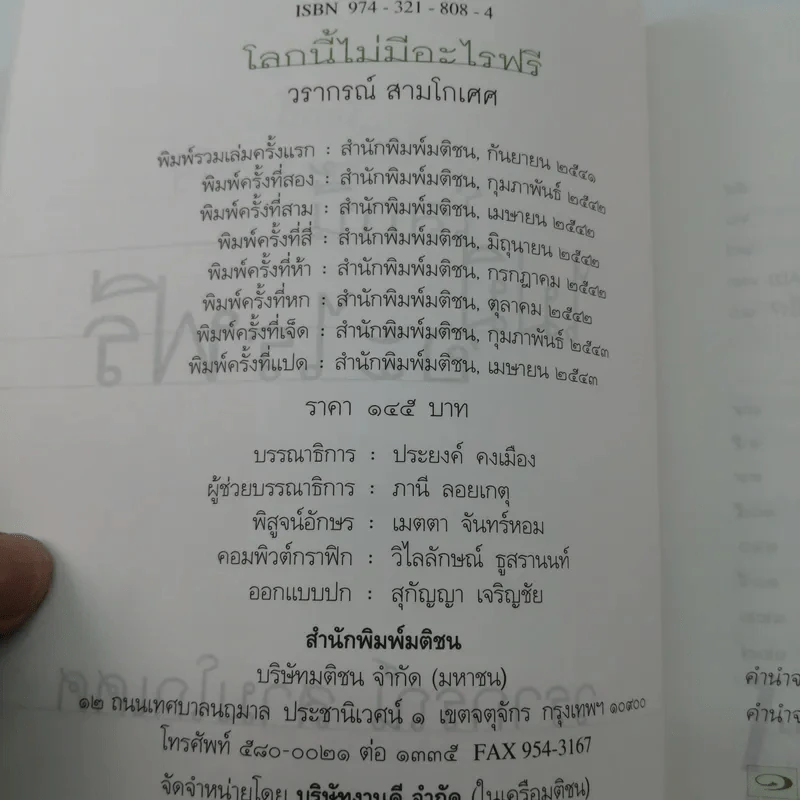 ISBN 974 - 321 - 808 - 4
โลกนี้ไม่มีอะไรฟรี
วรากรณ์ สามโกเศศ
พิมพ์รวมเล่มครั้งแรก : สำนักพิมพ์มติชน, กันยายน ๒๕๔๑
พิมพ์ครั้งที่สอง : สำนักพิมพ์มติชน, กุมภาพันธ์ ๒๕๔๒
พิมพ์ครั้งที่สาม : สำนักพิมพ์มติชน, เมษายน ๒๕๔๒
พิมพ์ครั้งที่สี่ : สำนักพิมพ์มติชน, มิถุนายน ๒๕๔๒
พิมพ์ครั้งที่ห้า : สำนักพิมพ์มติชน, กรกฎาคม ๒๕๔๒
พิมพ์ครั้งที่หก : สำนักพิมพ์มติชน, ตุลาคม ๒๕๔๒
พิมพ์ครั้งที่เจ็ด : สำนักพิมพ์มติชน, กุมภาพันธ์ ๒๕๔๓
พิมพ์ครั้งที่แปด : สำนักพิมพ์มติชน, เมษายน ๒๕๔๓
ราคา ๑๔๕ บาท
บรรณาธิการ : ประยงค์ คงเมือง
ผู้ช่วยบรรณาธิการ : ภานี ลอยเกตุ
พิสูจน์อักษร : เมตตา จันทร์หอม
คอมพิวต์กราฟิก : วิไลลักษณ์ ธูสรานนท์
ออกแบบปก : สุกัญญา เจริญชัย
สำนักพิมพ์มติชน
บริษัทมติชน จำกัด (มหาชน)
๑๒ ถนนเทศบาลนฤมาล ประชานิเวศน์ ๑ เขตจตุจักร กรุงเทพฯ ๑๐๙๐๐
โทรศัพท์ ๕๘๐-๐๐๒๑ ต่อ ๑๓๓๕ FAX 954-3167
จัดจำหน่ายโดย บริษัทงานดี จำกัด (ในเครือมติชน)
คำนำจ
คำนำจ